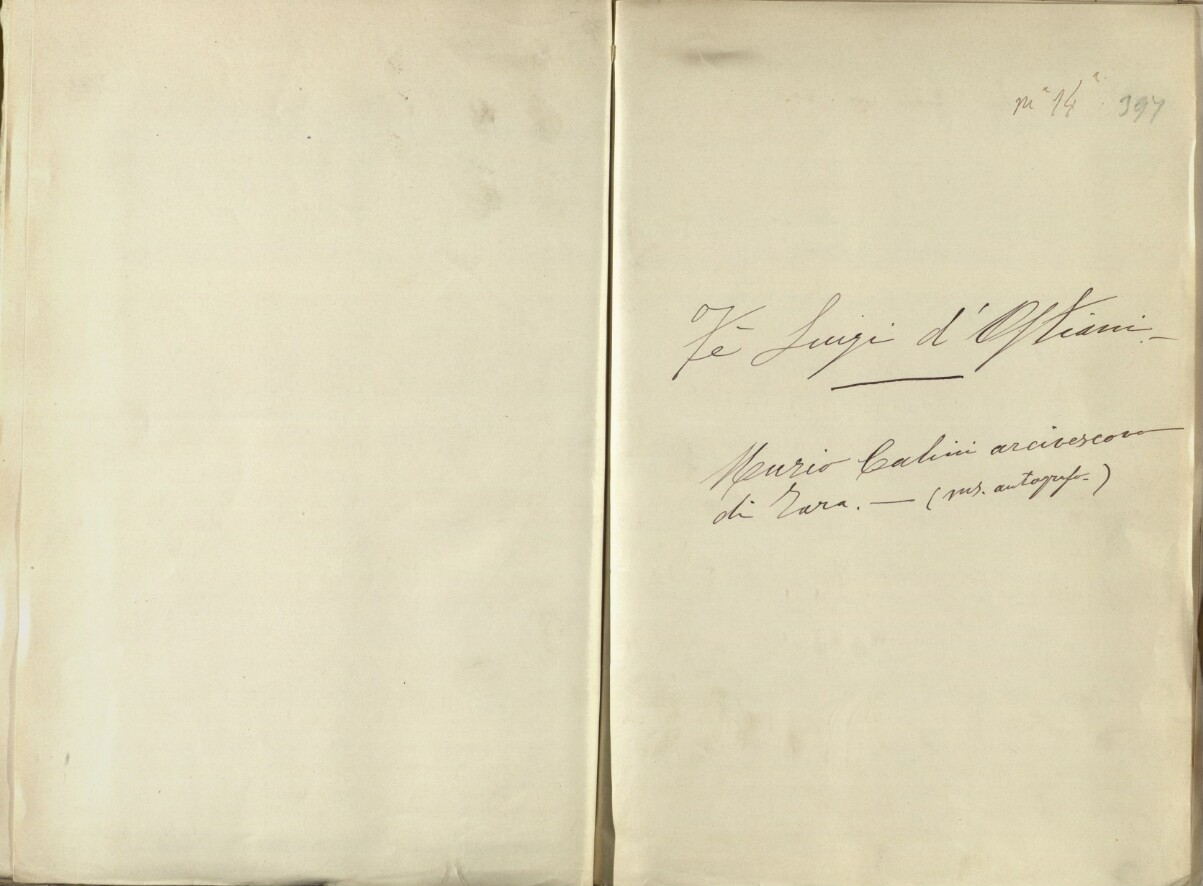 m.ª 14.ª 397
Fè Luigi d'Ostiani.—
Muzio Calini arcivescovo
di Zara. — (ms. autografo.)